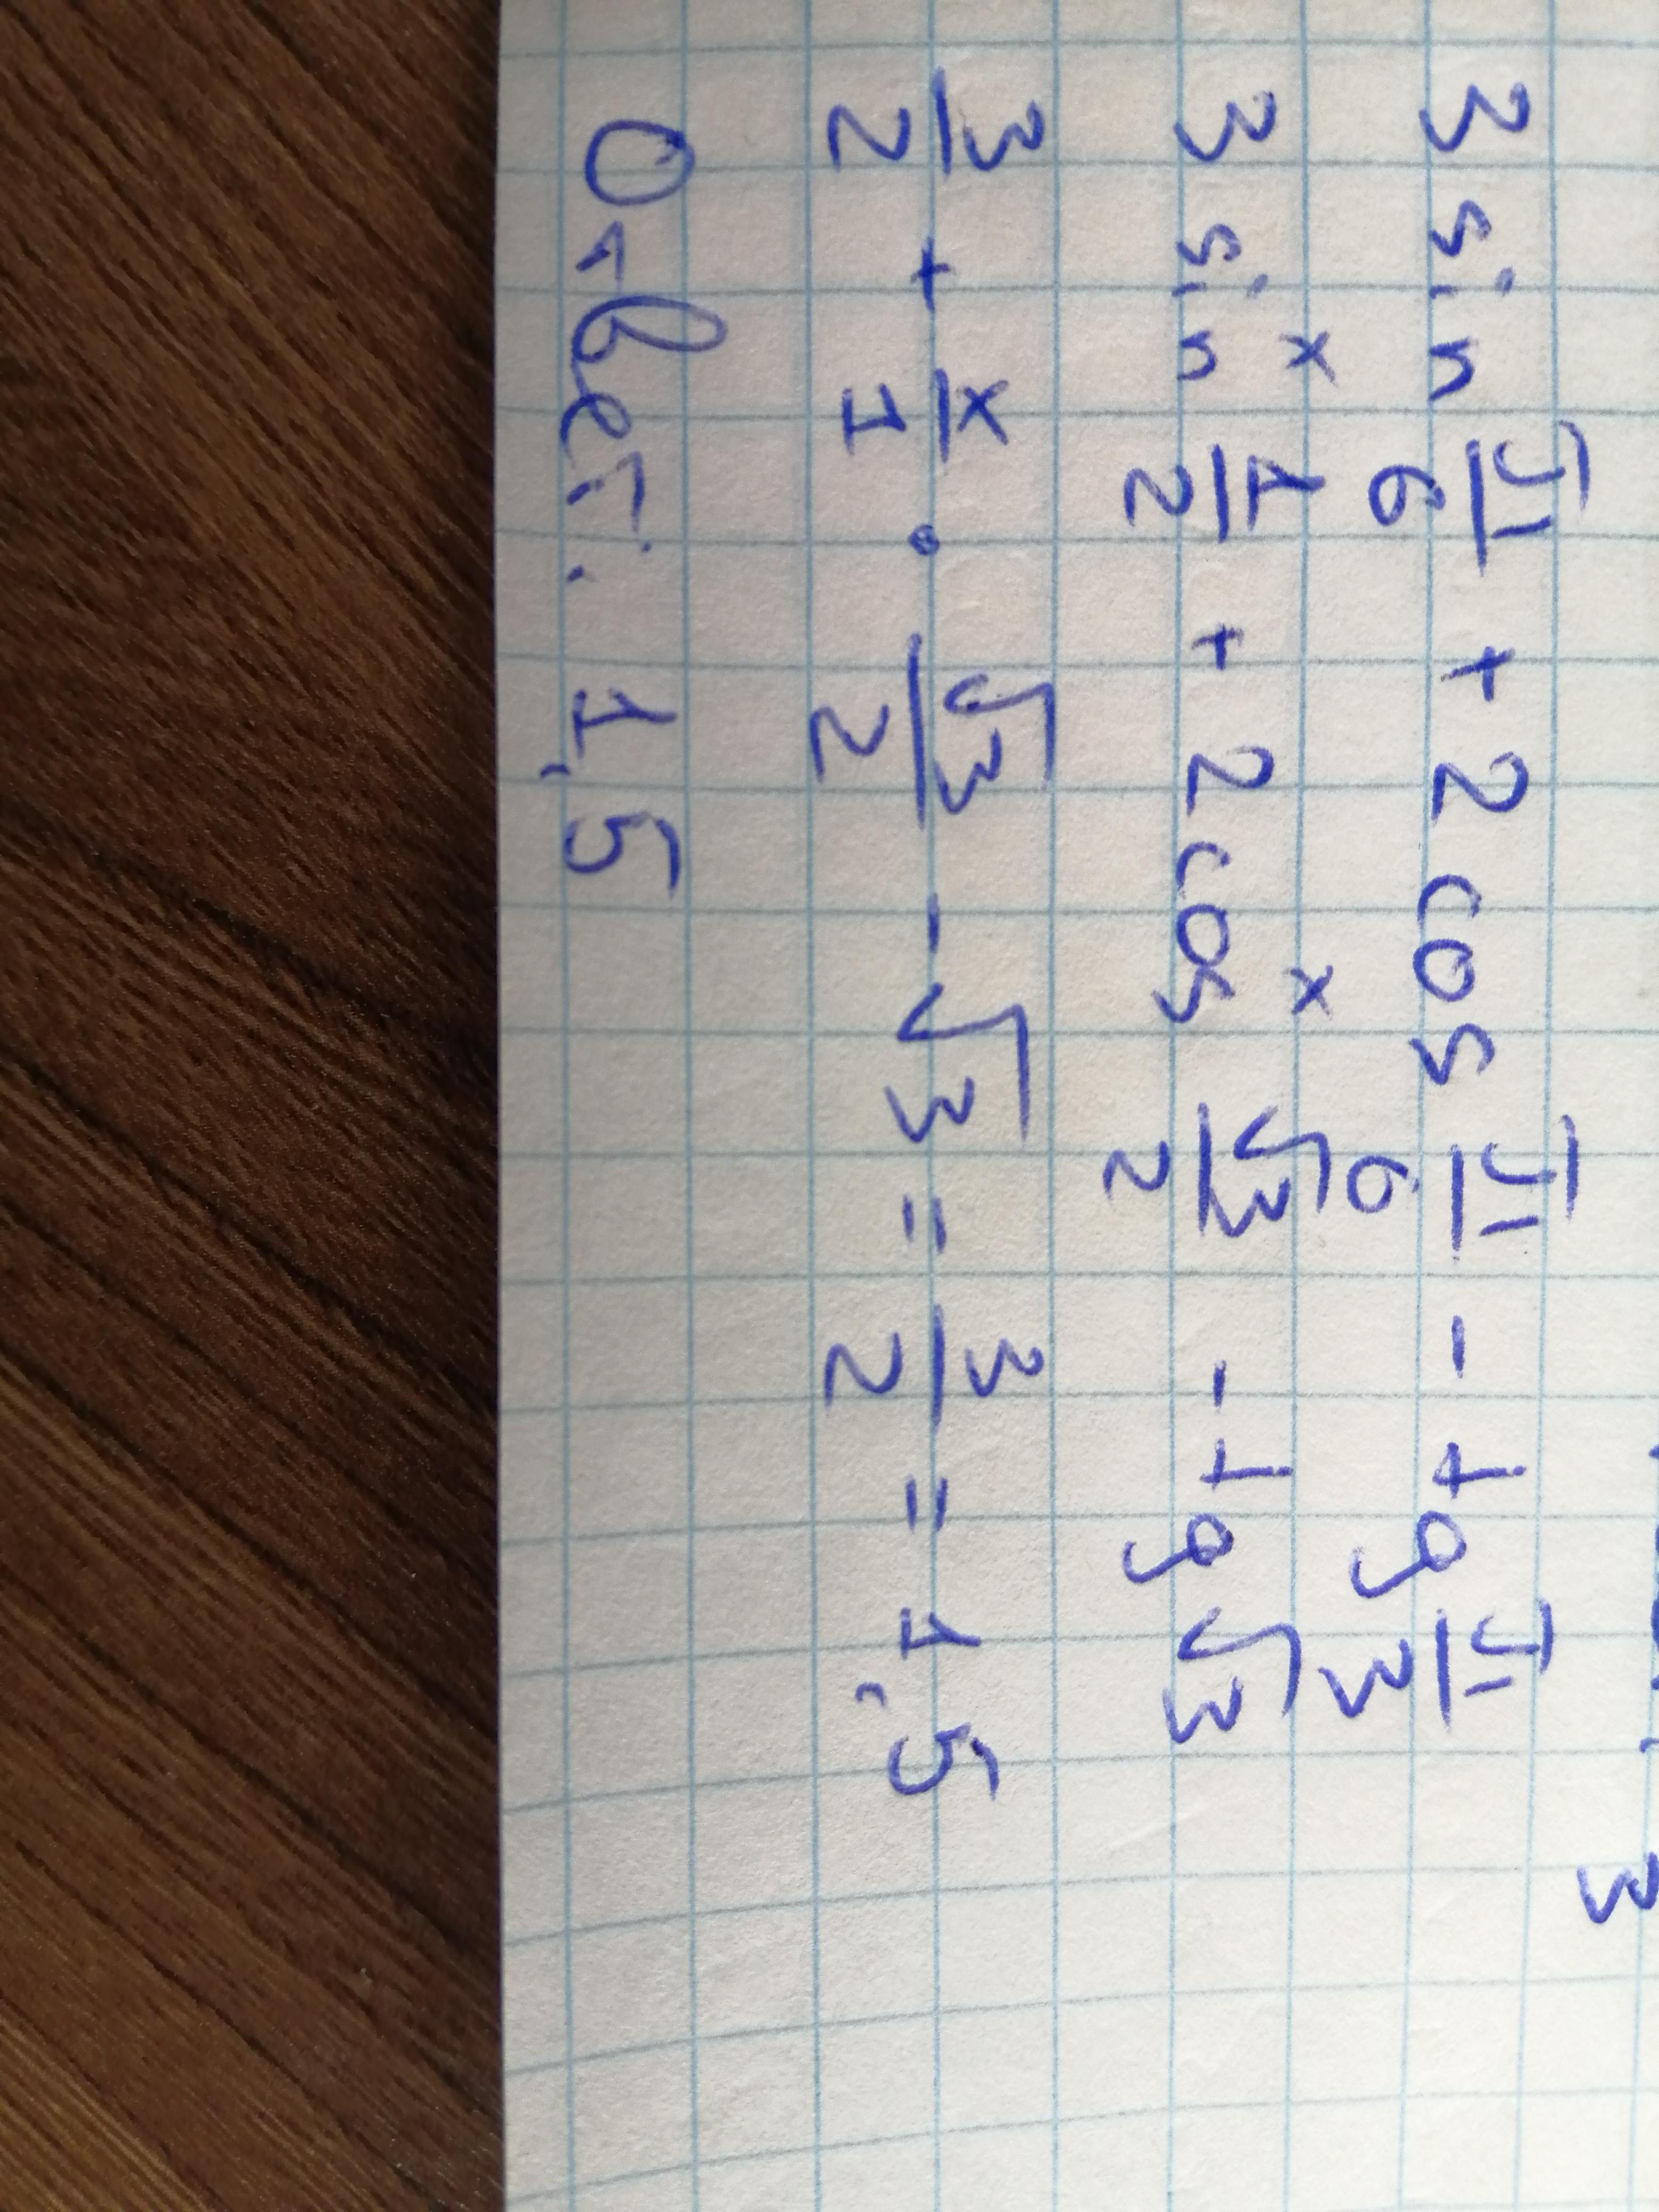 3 sin π/6 + 2 cos π/6 - tg π/3
3 sin × 1/2 + 2 cos × √3/2 - tg √3
3/2 + x/1 · √3/2 - √3 = 3/2 = 1,5
Ответ: 1,5